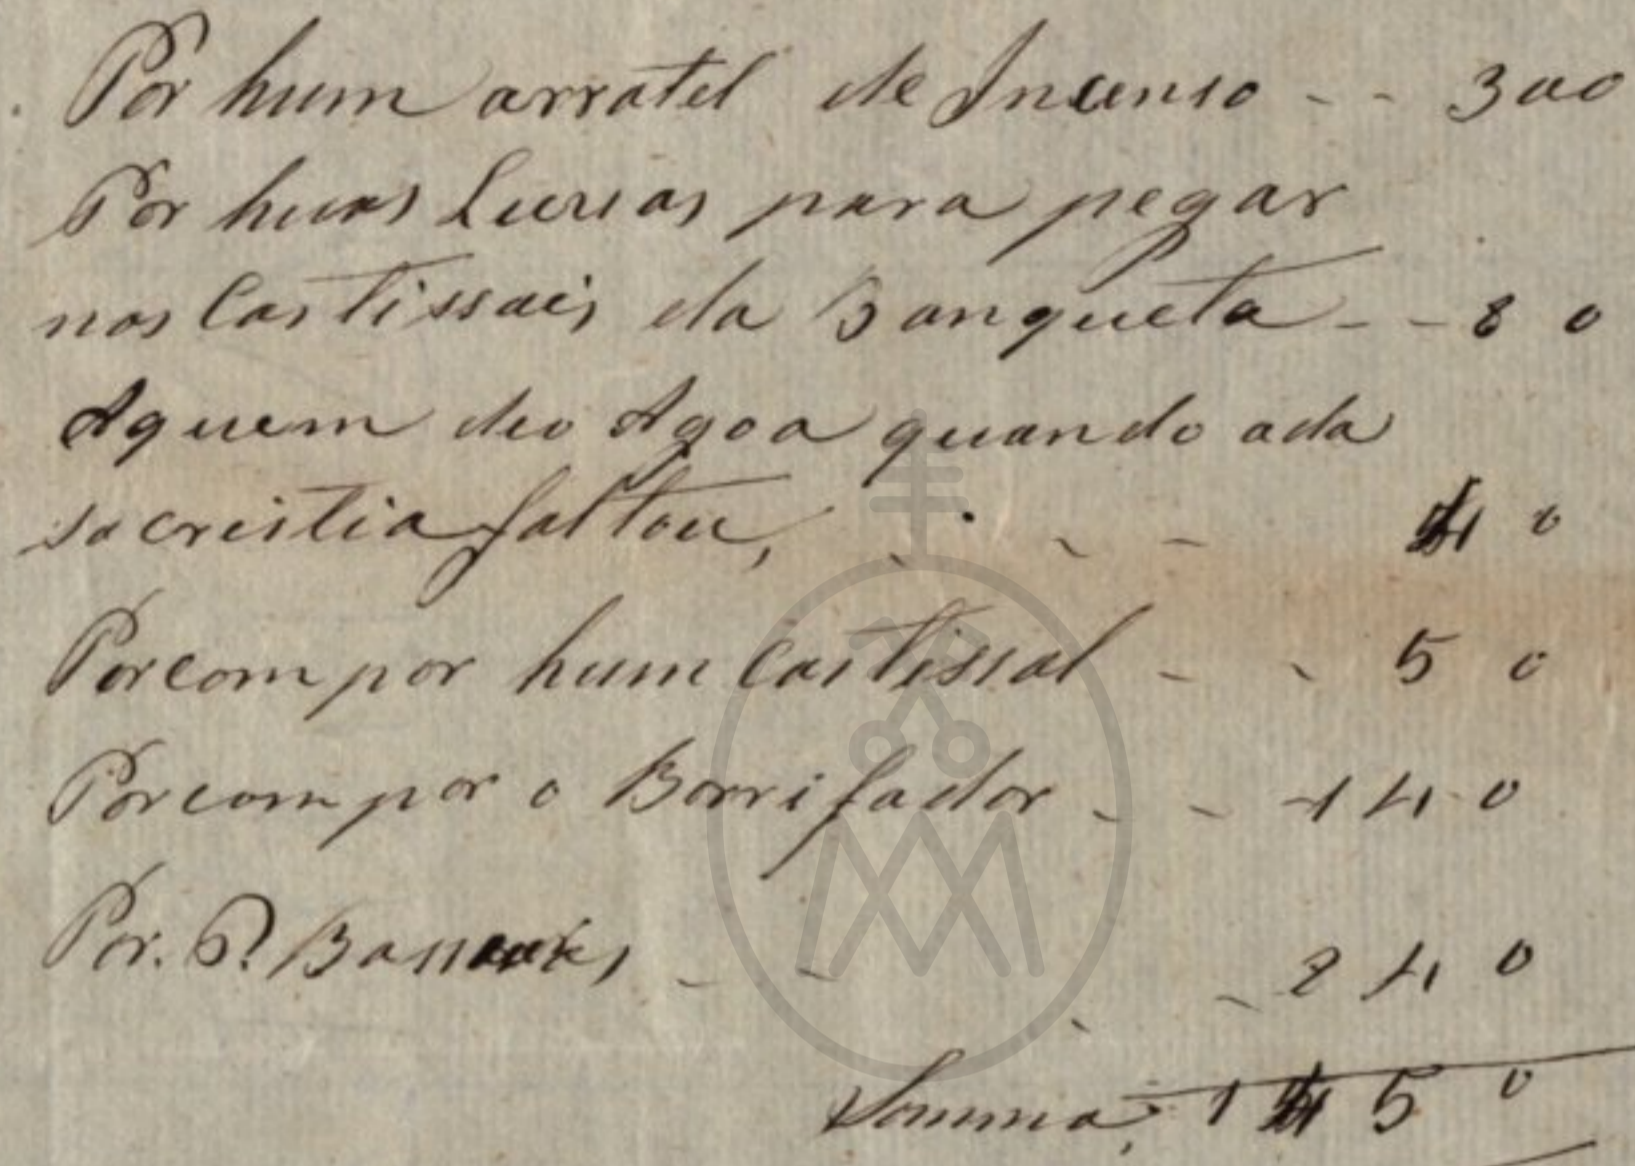 Por hum arratel de Incenso - - 300
Por huas Luvas para pegar
nos Castissais da Banqueta - - 80
Aquem deo Agoa quando ada
sacristia faltou, - - - 40
Porcompor hum Castissal - - 50
Porcompor o Borrifador - - 140
Por. 6. Bassouras - - - 240
Somma, 1450